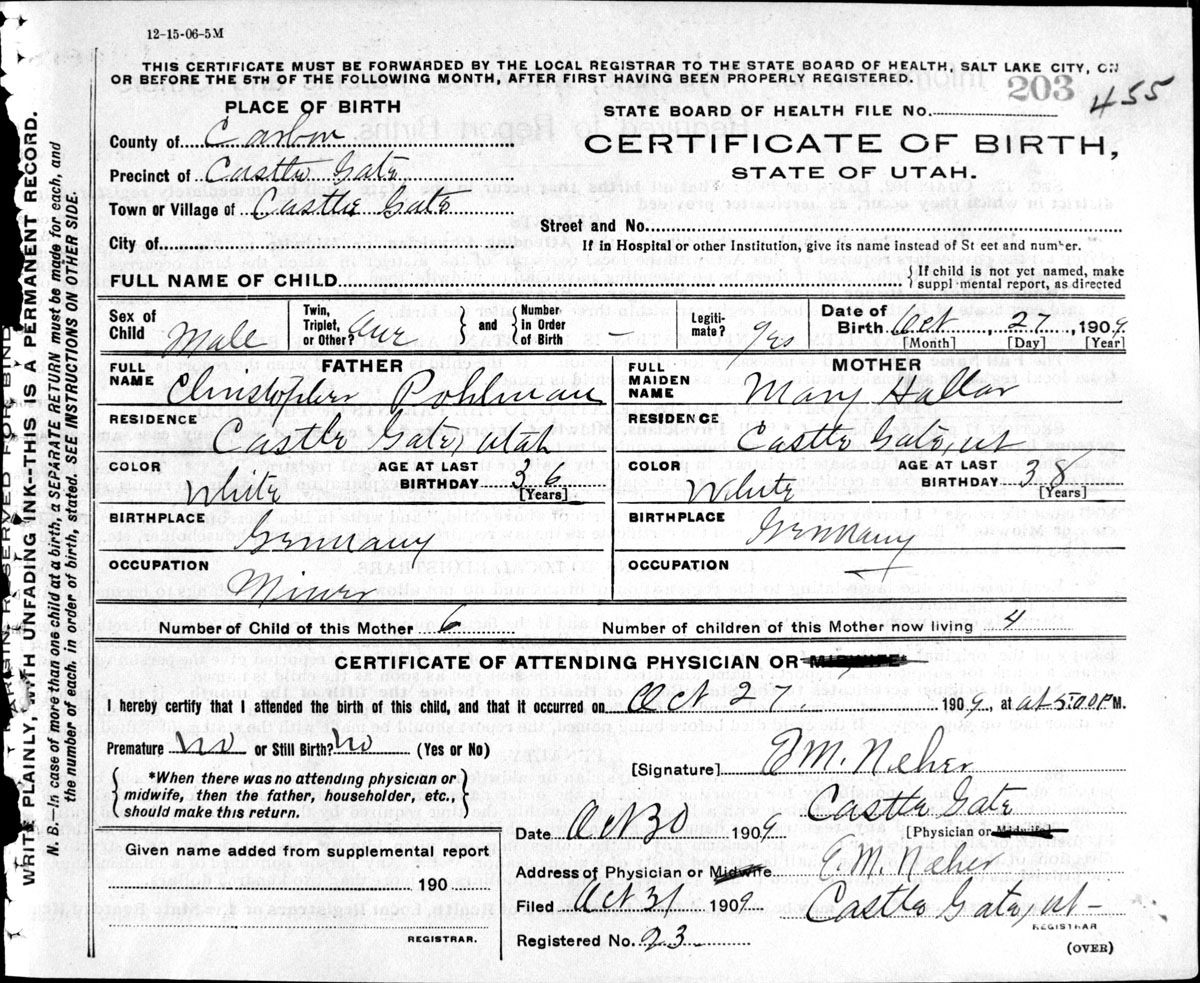 12-15-06-5M
THIS CERTIFICATE MUST BE FORWARDED BY THE LOCAL REGISTRAR TO THE STATE BOARD OF HEALTH, SALT LAKE CITY, ON
OR BEFORE THE 5TH OF THE FOLLOWING MONTH, AFTER FIRST HAVING BEEN PROPERLY REGISTERED.
203 455
PLACE OF BIRTH
STATE BOARD OF HEALTH FILE No.
County of Carbon
CERTIFICATE OF BIRTH,
Precinct of Castle Gate
STATE OF UTAH.
Town or Village of Castle Gate
Street and No.
City of
If in Hospital or other Institution, give its name instead of St eet and number.
FULL NAME OF CHILD
{ If child is not yet named, make
suppl mental report, as directed
Sex of Child Male
Twin, Triplet, or Other? One } and { Number in Order of Birth –
Legitimate? yes
Date of Birth Oct 27, 1909
[Month] [Day] [Year]
FATHER
FULL NAME Christopher Pohlman
RESIDENCE Castle Gate, Utah
COLOR White AGE AT LAST BIRTHDAY 36 [Years]
BIRTHPLACE Germany
OCCUPATION Miner
MOTHER
FULL MAIDEN NAME Mary Hallar
RESIDENCE Castle Gate, ut
COLOR White AGE AT LAST BIRTHDAY 38 [Years]
BIRTHPLACE Germany
OCCUPATION
Number of Child of this Mother 6 Number of children of this Mother now living 4
CERTIFICATE OF ATTENDING PHYSICIAN OR MIDWIFE*
I hereby certify that I attended the birth of this child, and that it occurred on Oct 27. 1909, at at 5.00 P. M.
Premature No or Still Birth? No (Yes or No)
[Signature] E M. Neher
{ *When there was no attending physician or
midwife, then the father, householder, etc.,
should make this return. }
Castle Gate
Date Oct 30 1909 [Physician or Midwife]
Given name added from supplemental report
190
REGISTRAR.
Address of Physician or Midwife E. M. Neher
Filed Oct 31 1909 Castle Gate, ut –
REGISTRAR
Registered No. 23
(OVER)
MARGIN RESERVED FOR BIND
WRITE PLAINLY, WITH UNFADING INK–THIS IS A PERMANENT RECORD.
N. B.–In case of more than one child at a birth, a SEPARATE RETURN must be made for each, and
the number of each, in order of birth, stated. SEE INSTRUCTIONS ON OTHER SIDE.